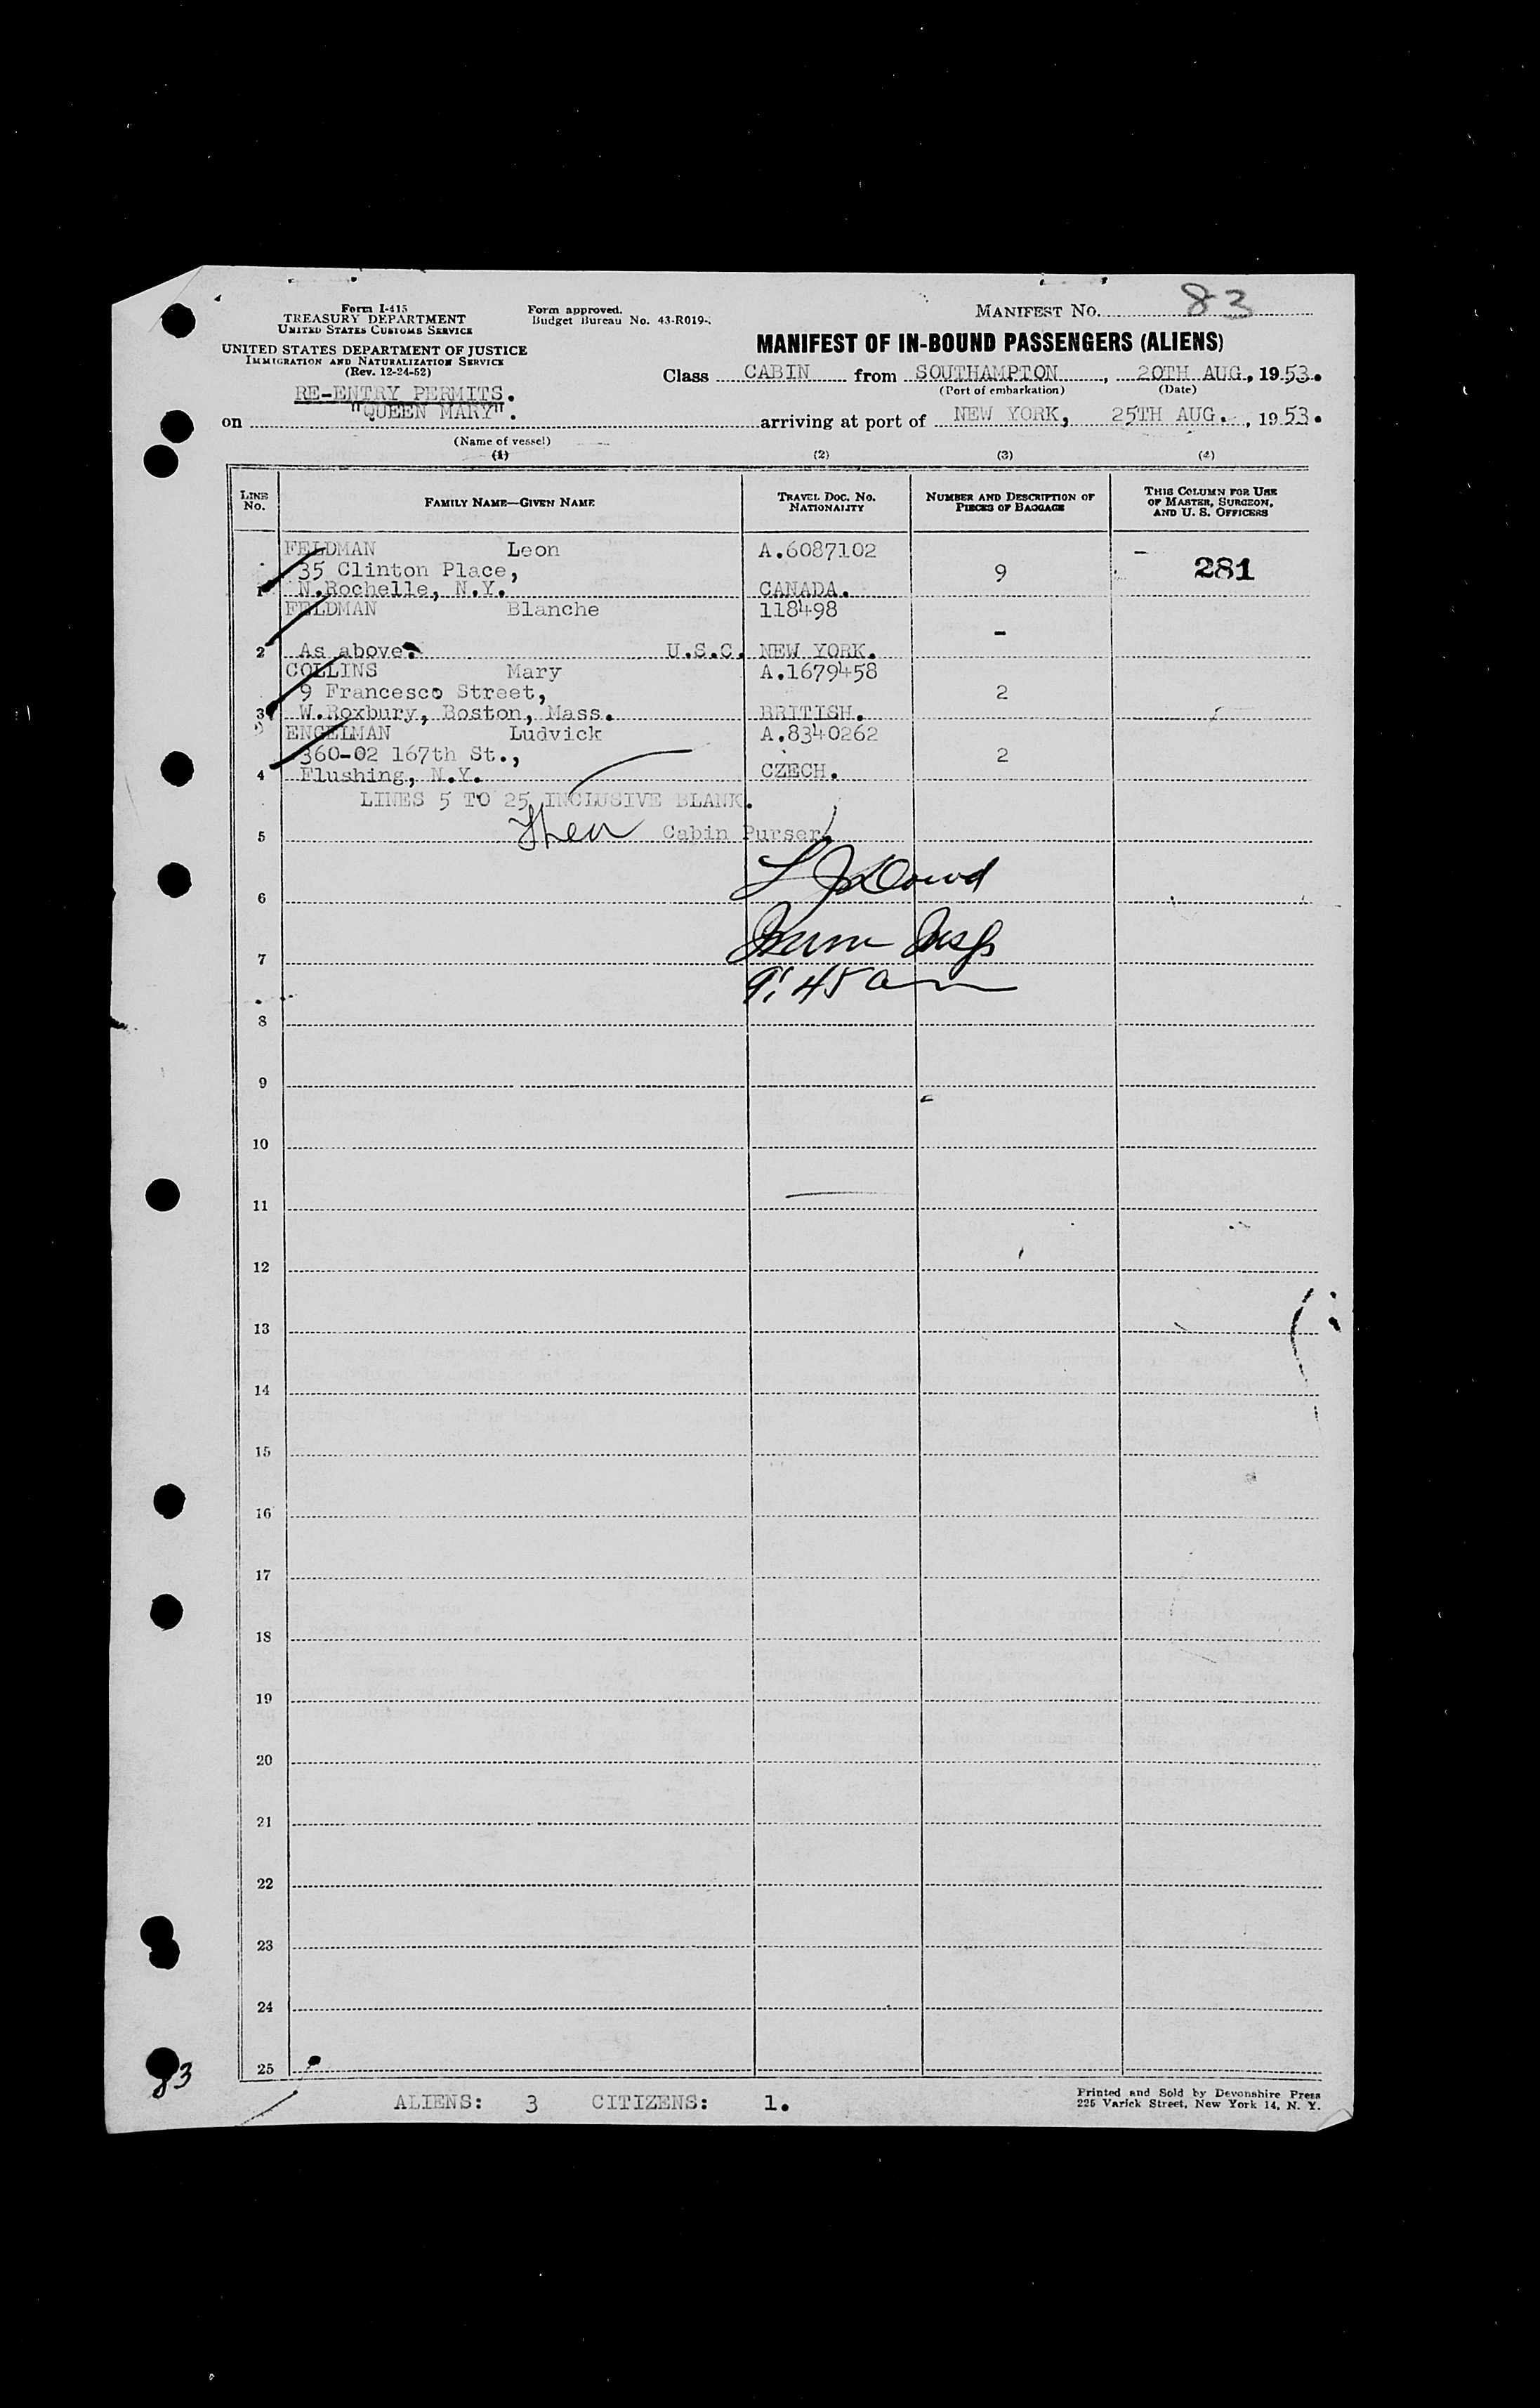 Form I-415
TREASURY DEPARTMENT
UNITED STATES CUSTOMS SERVICE
Form approved.
Budget Bureau No. 43-R019-.
MANIFEST NO. 83
UNITED STATES DEPARTMENT OF JUSTICE
IMMIGRATION AND NATURALIZATION SERVICE
(Rev. 12-24-52)
MANIFEST OF IN-BOUND PASSENGERS (ALIENS)
Class CABIN from SOUTHAMPTON, 20TH AUG, 1953.
(Port of embarkation) (Date)
RE-ENTRY PERMITS.
on "QUEEN MARY". arriving at port of NEW YORK, 25TH AUG., 1953.
(Name of vessel)
(1) (2) (3) (4)
LINE No. FAMILY NAME—GIVEN NAME TRAVEL DOC. NO. NATIONALITY NUMBER AND DESCRIPTION OF PIECES OF BAGGAGE THIS COLUMN FOR USE OF MASTER, SURGEON, AND U. S. OFFICERS
FELDMAN Leon A.6087102
35 Clinton Place, 9 281
1 N.Rochelle, N.Y. CANADA.
FELDMAN Blanche 118498
-
2 As above. U.S.C. NEW YORK.
COLLINS Mary A.1679458
9 Francesco Street, 2
3 W.Roxbury, Boston, Mass. BRITISH.
ENGELMAN Ludvick A.8340262
360-02 167th St., 2
4 Flushing, N.Y. CZECH.
LINES 5 TO 25 INCLUSIVE BLANK.
5 Cabin Purser.
6
7 Imm Insp
9:45 am
8
9
10
11
12
13
14
15
16
17
18
19
20
21
22
23
24
25
83
ALIENS: 3 CITIZENS: 1.
Printed and Sold by Devonshire Press
225 Varick Street, New York 14, N. Y.